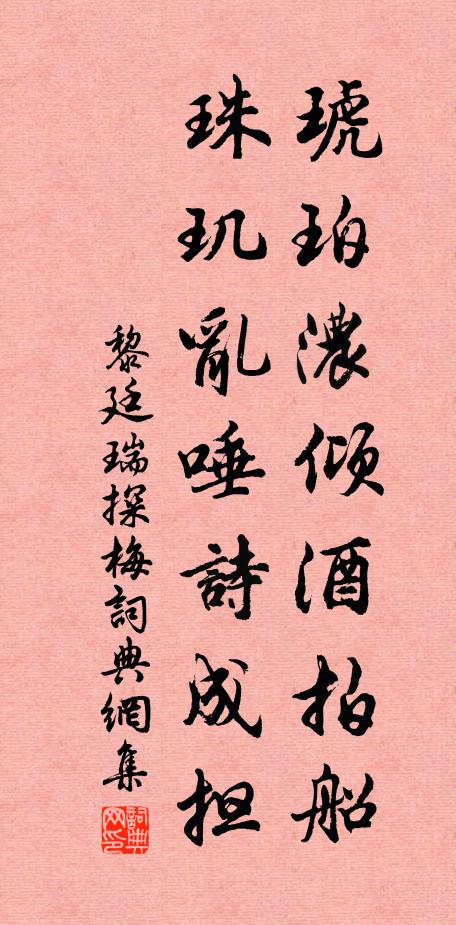 琥珀濃傾酒拍船
珠玑亂唾詩成担
黎廷瑞探梅詞典網集
詞典网印